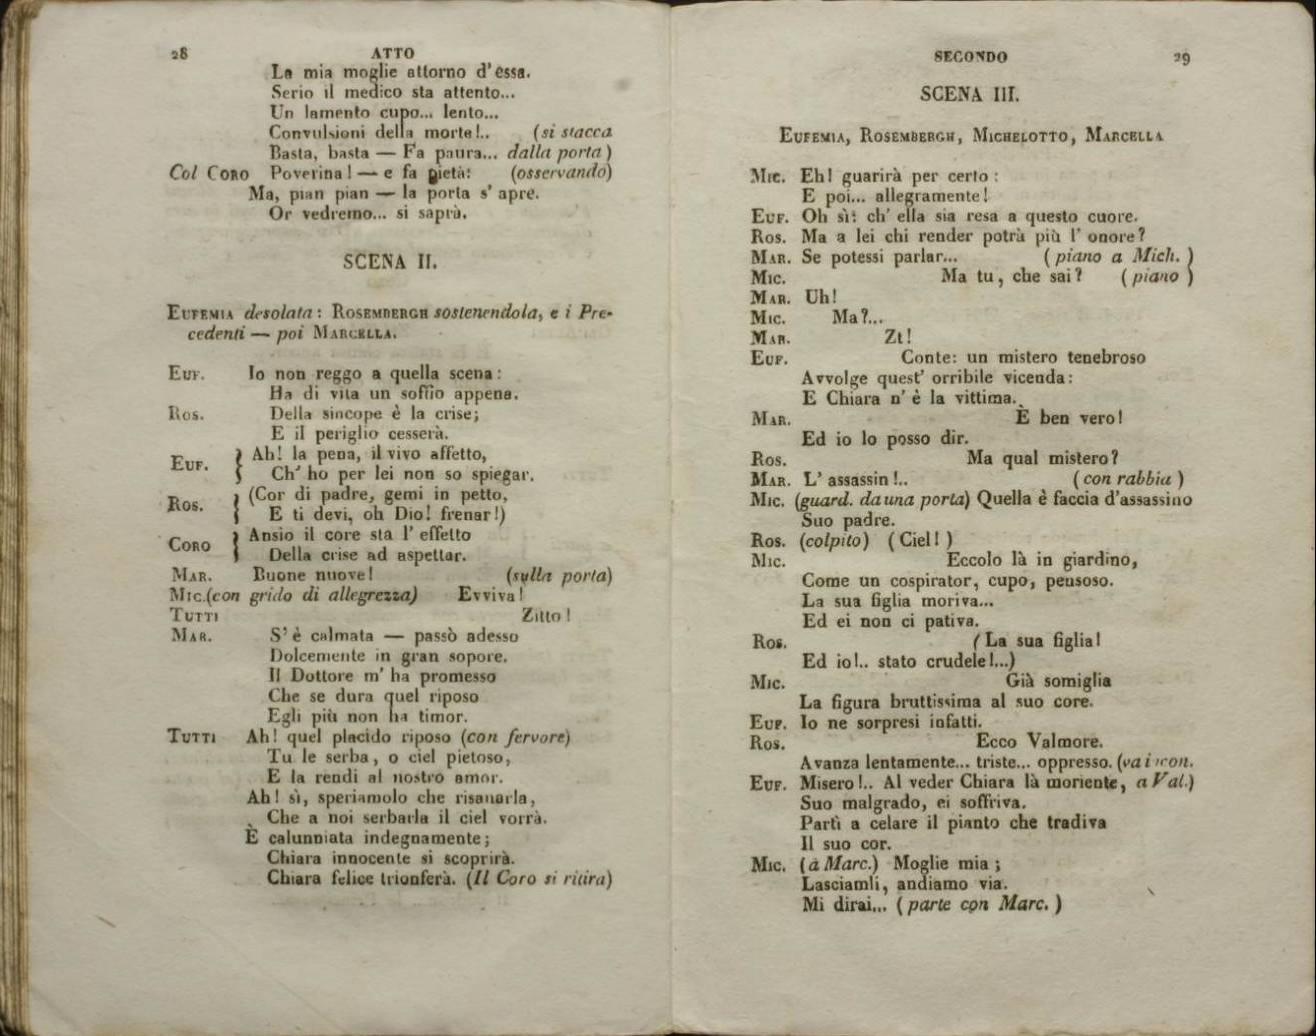 28 ATTO
La mia moglie attorno d' essa.
Serio il medico sta attento...
Un lamento cupo... lento...
Convulsioni della morte!.. (si stacca
Basta, basta — Fa paura... dalla porta)
Col CORO Poverina! — e fa pietà: (osservando)
Ma, pian pian — la porta s' apre.
Or vedremo... si saprà.
SCENA II.
EUFEMIA desolata: ROSEMBERGH sostenendola, e i Pre-
cedenti — poi MARCELLA.
EUF. Io non reggo a quella scena:
Ha di vita un soffio appena.
ROS. Della sincope è la crise;
E il periglio cesserà.
EUF. { Ah! la pena, il vivo affetto,
Ch' ho per lei non so spiegar.
ROS. { (Cor di padre, gemi in petto,
E ti devi, oh Dio! frenar!)
CORO { Ansio il core sta l' effetto
Della crise ad aspettar.
MAR. Buone nuove! (sulla porta)
MIC. (con grido di allegrezza) Evviva!
TUTTI Zitto!
MAR. S' è calmata — passò adesso
Dolcemente in gran sopore.
Il Dottore m' ha promesso
Che se dura quel riposo
Egli più non ha timor.
TUTTI Ah! quel placido riposo (con fervore)
Tu le serba, o ciel pietoso,
E la rendi al nostro amor.
Ah! sì, speriamolo che risanarla,
Che a noi serbarla il ciel vorrà.
È calunniata indegnamente;
Chiara innocente si scoprirà.
Chiara felice trionferà. (Il Coro si ritira)
SECONDO 29
SCENA III.
EUFEMIA, ROSEMBERGH, MICHELOTTO, MARCELLA
MIC. Eh! guarirà per certo:
E poi... allegramente!
EUF. Oh sì: ch' ella sia resa a questo cuore.
ROS. Ma a lei chi render potrà più l' onore?
MAR. Se potessi parlar... (piano a Mich.)
MIC. Ma tu, che sai? (piano)
MAR. Uh!
MIC. Ma?...
MAR. Zt!
EUF. Conte: un mistero tenebroso
Avvolge quest' orribile vicenda:
E Chiara n' è la vittima.
MAR. È ben vero!
Ed io lo posso dir.
ROS. Ma qual mistero?
MAR. L' assassin!.. (con rabbia)
MIC. (guard. da una porta) Quella è faccia d'assassino
Suo padre.
ROS. (colpito) (Ciel!)
MIC. Eccolo là in giardino,
Come un cospirator, cupo, pensoso.
La sua figlia moriva...
Ed ei non ci pativa.
ROS. (La sua figlia!
Ed io!.. stato crudele!...)
MIC. Già somiglia
La figura bruttissima al suo core.
EUF. Io ne sorpresi infatti.
ROS. Ecco Valmore.
Avanza lentamente... triste... oppresso. (va incon.
EUF. Misero!.. Al veder Chiara là moriente, a Val.)
Suo malgrado, ei soffriva.
Partì a celare il pianto che tradiva
Il suo cor.
MIC. (a Marc.) Moglie mia;
Lasciamli, andiamo via.
Mi dirai... (parte con Marc.)